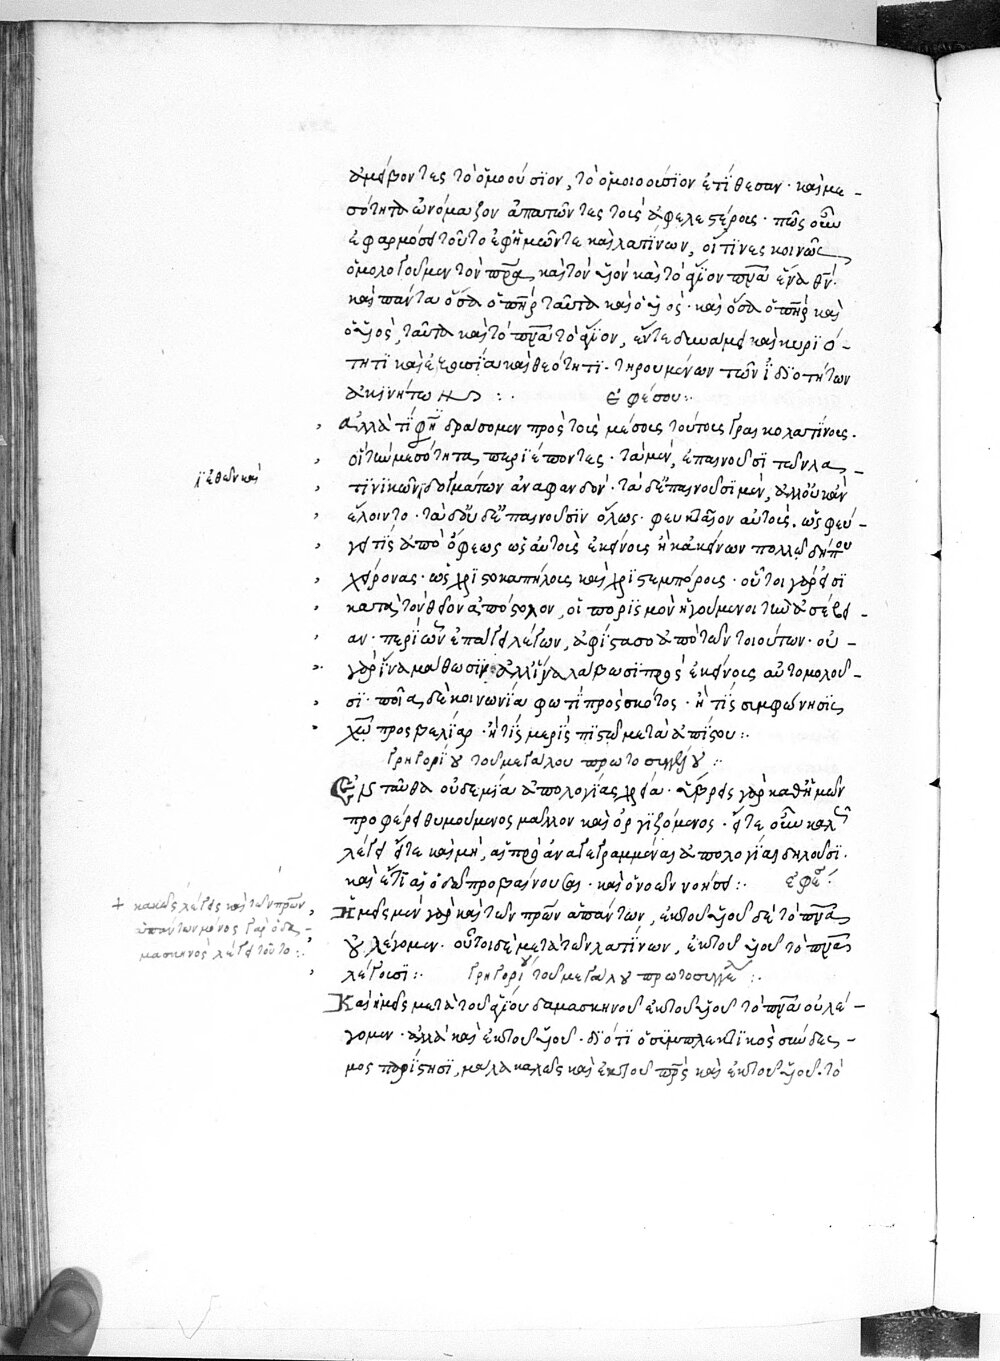 ἀμείβοντες τὸ ὁμοούσιον, τὸ ὁμοιοούσιον ἐτίθεσαν· καὶ με-
σότητα ὠνόμαζον ἀπατῶντες τοὺς ἀφελεστέρους· πῶς οὖν
ἐφαρμόσει τοῦτο ἐφ' ἡμῶν τε καὶ λατίνων, οἵτινες κοινῶς
ὁμολογοῦμεν τὸν πρα καὶ τὸν υἱὸν καὶ τὸ ἅγιον πνα ἕνα θν·
καὶ πάντα ὅσα ὁ πηρ ταῦτα καὶ ὁ υἱός· καὶ ὅσα ὁ πηρ καὶ
ὁ υἱός, ταῦτα καὶ τὸ πνα τὸ ἅγιον, ἔν τε δυνάμει καὶ κυριό-
τητι καὶ ἐξουσίᾳ καὶ θεότητι· τηρουμένων τῶν ἰδιοτήτων
ἀκινήτων :· Ἐφέσου:·
Ἀλλὰ τί φησι δράσομεν πρὸς τοὺς μέσους τούτους γραικολατίνους·
οἳ τὴν μεσότητα περιέποντες· τὰ μὲν, ἐπαινοῦσι τῶν λα-
τινικῶν δογμάτων ἀναφανδόν· τὰ δ' ἐπαινοῦσι μὲν, ἀλλ' οὐκ ἂν
ἕλοιντο· τὰ δ' οὐδ' ἐπαινοῦσιν ὅλως· φευκταῖον αὐτοὺς, ὡς φεύ-
γει τις ἀπὸ ὄφεως ὡς αὐτοὺς ἐκείνους ἢ κἀκείνων πολλῷ δήπου
χείρονας· ὡς χριστοκαπήλους καὶ χριστεμπόρους· οὗτοι γάρ εἰσι
κατὰ τὸν θεῖον ἀπόστολον, οἱ πορισμὸν ἡγούμενοι τὴν εὐσέβει-
αν· περὶ ὧν ἐπάγει λέγων, ἀφίστασο ἀπὸ τῶν τοιούτων· οὐ-
γὰρ ἵνα μάθωσιν ἀλλ' ἵνα λάβωσι πρὸς ἐκείνους αὐτομολοῦ-
σι· ποία δὲ κοινωνία φωτὶ πρὸς σκότος· ἢ τίς συμφώνησις
χω πρὸς βελίαρ· ἢ τίς μερὶς πιστῷ μετὰ ἀπίστου:·
Γρηγορίου τοῦ μεγάλου πρωτοσυγγέλου :·
Ἐνταῦθα οὐδεμία ἀπολογίας χρεία· ὕβρεις γὰρ καθ' ἡμῶν
προφέρει θυμούμενος μᾶλλον καὶ ὀργιζόμενος· εἴτε οὖν καλῶς
λέγει εἴτε καὶ μὴ, αἱ προαναγεγραμμέναι ἀπολογίαι δηλοῦσι·
καὶ ἔτι αἱ ὁδῷ προβαίνουσαι· καὶ ὁ νοῶν νοήσει:· ἐφέ:
Ἡμεῖς μὲν γὰρ καὶ τῶν πρων ἁπάντων, ἐκ τοῦ υἱοῦ δὲ τὸ πνα
οὐ λέγομεν· οὗτοι δὲ μετὰ τῶν λατίνων, ἐκ τοῦ υἱοῦ τὸ πνα
λέγουσι:· Γρηγορίου τοῦ μεγάλου πρωτοσυγγέλ :·
Καὶ ἡμεῖς μετὰ τοῦ ἁγίου δαμασκηνοῦ ἐκ τοῦ υἱοῦ τὸ πνα οὐ λέ-
γομεν· ἀλλὰ καὶ ἐκ τοῦ υἱοῦ· διότι ὁ συμπλεκτικὸς σύνδες-
μος παρίστησι, μάλα καλῶς καὶ ἐκ τοῦ πρς καὶ ἐκ τοῦ υἱοῦ. τὸ
+ κακῶς λέγεις καὶ τῶν πρων
ἁπάντων μόνος γὰρ ὁ δα-
μασκηνὸς λέγει τοῦτο:·